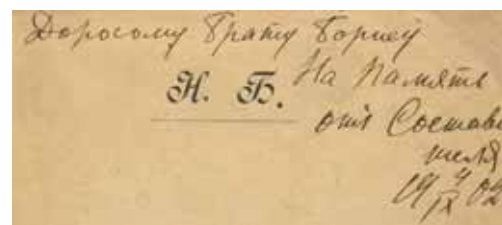 Дорогому Брату Борису
Н. Б.
На Память
отъ Состави
теля
19 4/IX 02